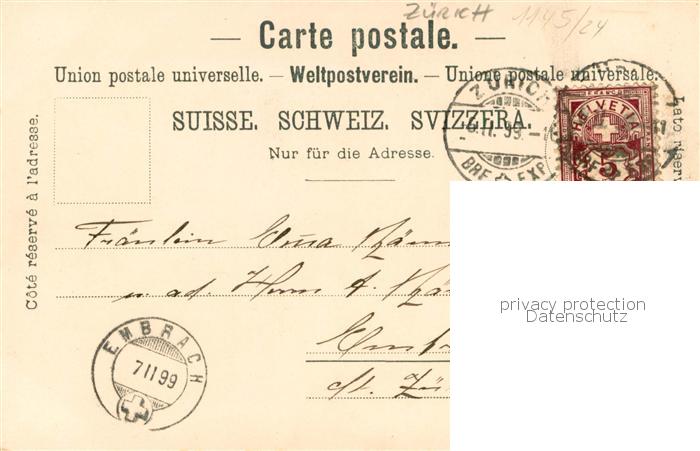 ZÜRICH 1145/24
— Carte postale. —
Union postale universelle. — Weltpostverein. — Unione postale universale.
SUISSE. SCHWEIZ. SVIZZERA.
Nur für die Adresse.
Côté réservé à l'adresse.
Lato riserv
ZÜRICH
-6.II.99.-
BRF. EXP.
HELVETIA
FRANCO
5
Fräulein
u. ad. Herrn A.
Emb
Kt. Zü
EMBRACH
7 II 99
privacy protection
Datenschutz